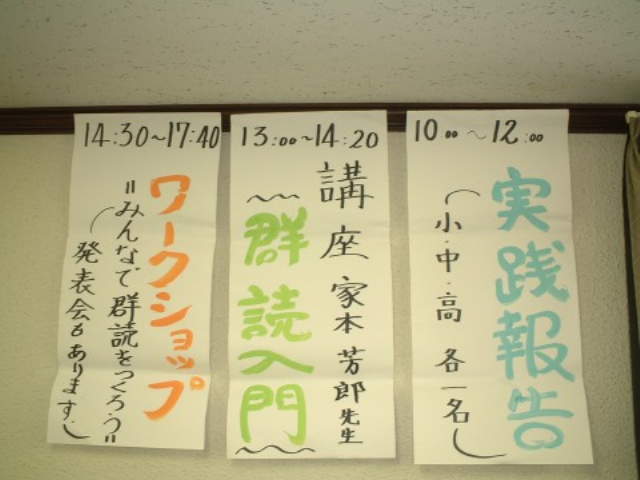 10:00～12:00
実践報告
(小・中・高 各一名)
13:00～14:20
講座 家本芳郎先生
～群読入門～
14:30～17:40
ワークショップ
"みんなで群読をつくろう"
(発表会もあります。)